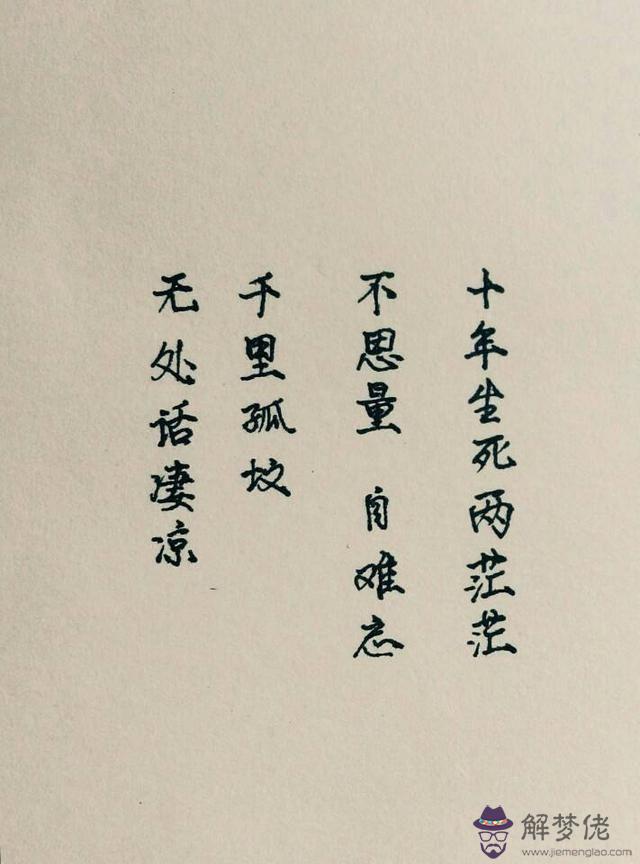 十年生死两茫茫
不思量 自难忘
千里孤坟
无处话凄凉
解梦佬
www.jiemenglao.com